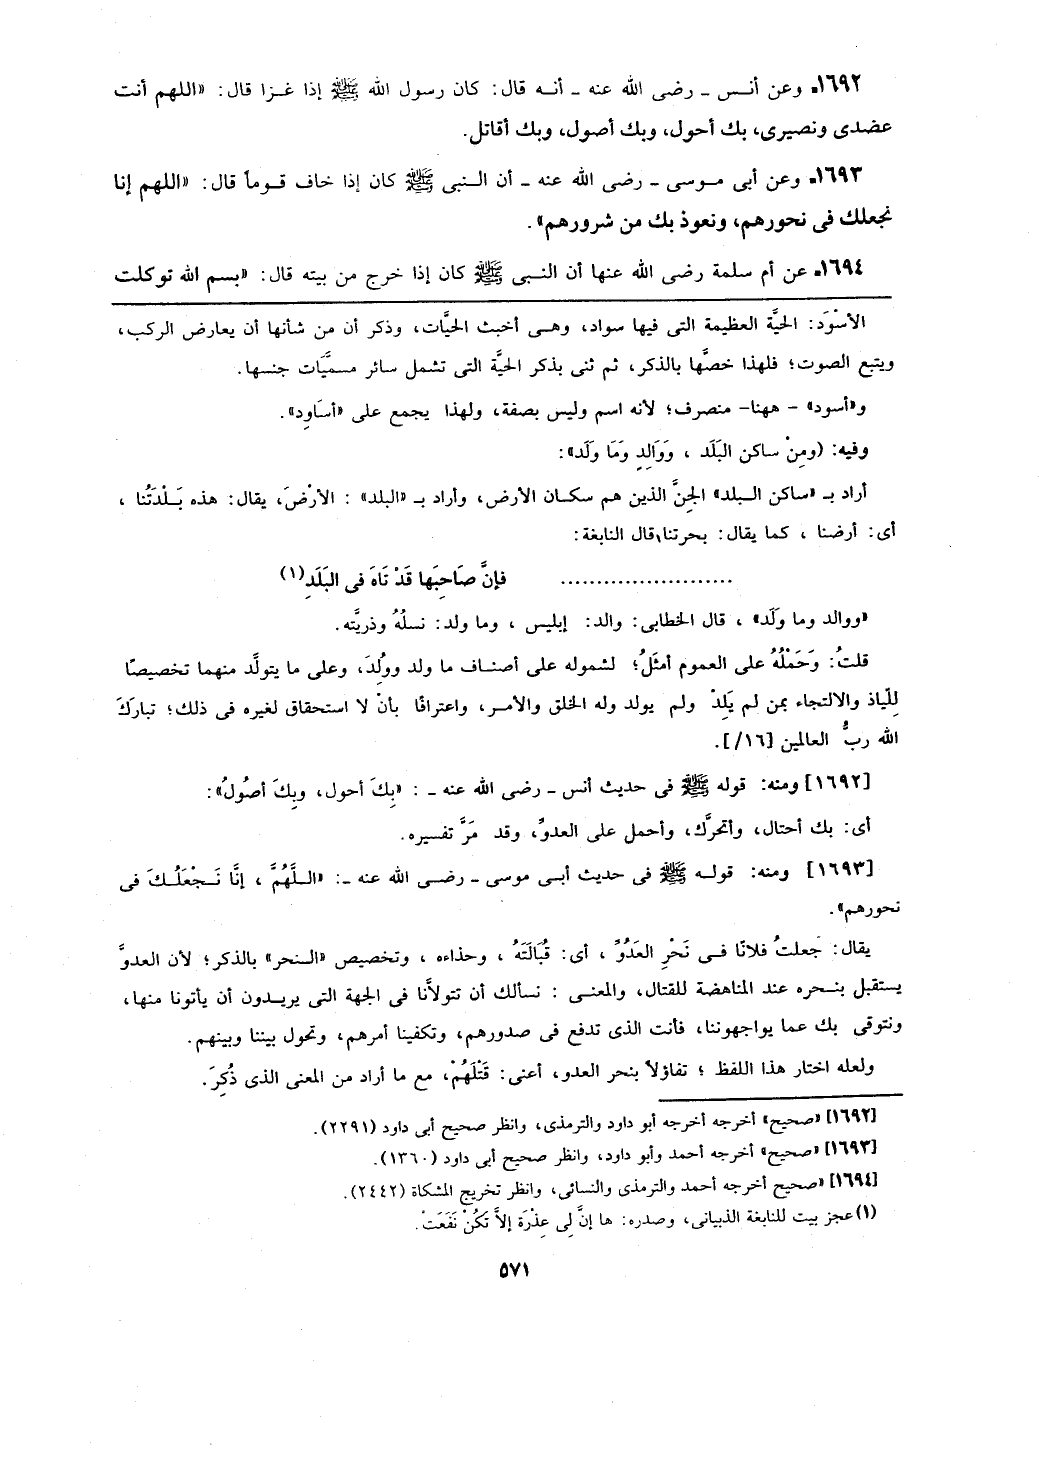 ١٦٩٢ـ وعن أنس ـ رضى الله عنه ـ أنه قال: كان رسول الله ﷺ إذا غزا قال: «اللهم أنت
عضدى ونصيرى، بك أحول، وبك أصول، وبك أقاتل.
١٦٩٣ـ وعن أبى موسى ـ رضى الله عنه ـ أن النبى ﷺ كان إذا خاف قوماً قال: «اللهم إنا
نجعلك فى نحورهم، ونعوذ بك من شرورهم».
١٦٩٤ـ عن أم سلمة رضى الله عنها أن النبى ﷺ كان إذا خرج من بيته قال: «بسم الله توكلت
الأسْوَد: الحيَّة العظيمة التى فيها سواد، وهى أخبث الحيَّات، وذكر أن من شأنها أن يعارض الركب،
ويتبع الصوت؛ فلهذا خصَّها بالذكر، ثم ثنى بذكر الحيَّة التى تشمل سائر مسميَّات جنسها.
و«أسود» - ههنا- منصرف؛ لأنه اسم وليس بصفة، ولهذا يجمع على «أسَاوِد».
وفيه: (ومِنْ ساكن البَلَد ، وَوَالِدٍ وَمَا وَلَد»:
أراد بـ «ساكن البلد» الجِنَّ الذين هم سكان الأرض، وأراد بـ «البلد» : الأرْضَ، يقال: هذه بَلْدَتُنا ،
أى: أرضنا ، كما يقال: بحرتنا،قال النابغة:
........................ فإنَّ صَاحِبَها قَدْ تَاهَ فى البَلَدِ(١)
«ووالد وما وَلَد» ، قال الخطابى: والد: إبليس ، وما ولد: نسلُهُ وذريَّته.
قلتُ: وَحَمْلُهُ على العموم أمثَلُ؛ لشموله على أصناف ما ولد ووُلِدَ، وعلى ما يتولَّد منهما تخصيصًا
لِلِّياذ والالتجاء بمن لم يَلِدْ ولم يولد وله الخلق والأمر، واعترافًا بأنْ لا استحقاق لغيره فى ذلك؛ تبارَكَ
الله ربُّ العالمين [١٦/].
[١٦٩٢] ومنه: قوله ﷺ فى حديث أنس ـ رضى الله عنه ـ : «بِكَ أحول، وبِكَ أصُولُ»:
أى: بك أحتال، وأتحرَّك، وأحمل على العدوِّ، وقد مَرَّ تفسيره.
[١٦٩٣] ومنه: قوله ﷺ فى حديث أبى موسى ـ رضى الله عنه ـ: «اللَّهُمَّ ، إنَّا نَجْعَلُكَ فى
نحورهم».
يقال: جَعلتُ فلانًا فى نَحْرِ العَدُوِّ ، أى: قُبَالَتَهُ ، وحذاءه ، وتخصيص «النحر» بالذكر؛ لأن العدوَّ
يستقبل بنحره عند المناهضة للقتال، والمعنى : نسألك أن تتولاَّنا فى الجهة التى يريدون أن يأتونا منها،
ونتوقى بك عما يواجهوننا، فأنت الذى تدفع فى صدورهم، وتكفينا أمرهم، وتحول بيننا وبينهم.
ولعله اختار هذا اللفظ ؛ تفاؤلاً بنحر العدو، أعنى: قَتْلَهُمْ، مع ما أراد من المعنى الذى ذُكِرَ.
[١٦٩٢] «صحيح» أخرجه أخرجه أبو داود والترمذى، وانظر صحيح أبى داود (٢٢٩١).
[١٦٩٣] «صحيح» أخرجه أحمد وأبو داود، وانظر صحيح أبى داود (١٣٦٠).
[١٦٩٤] «صحيح أخرجه أحمد والترمذى والنسائى، وانظر تخريج المشكاة (٢٤٤٢).
(١) عجز بيت للنابغة الذبيانى، وصدره: ها إنَّ لِى عِذْرَة إلاَّ تَكُنْ نَفَعَتْ.
٥٧١